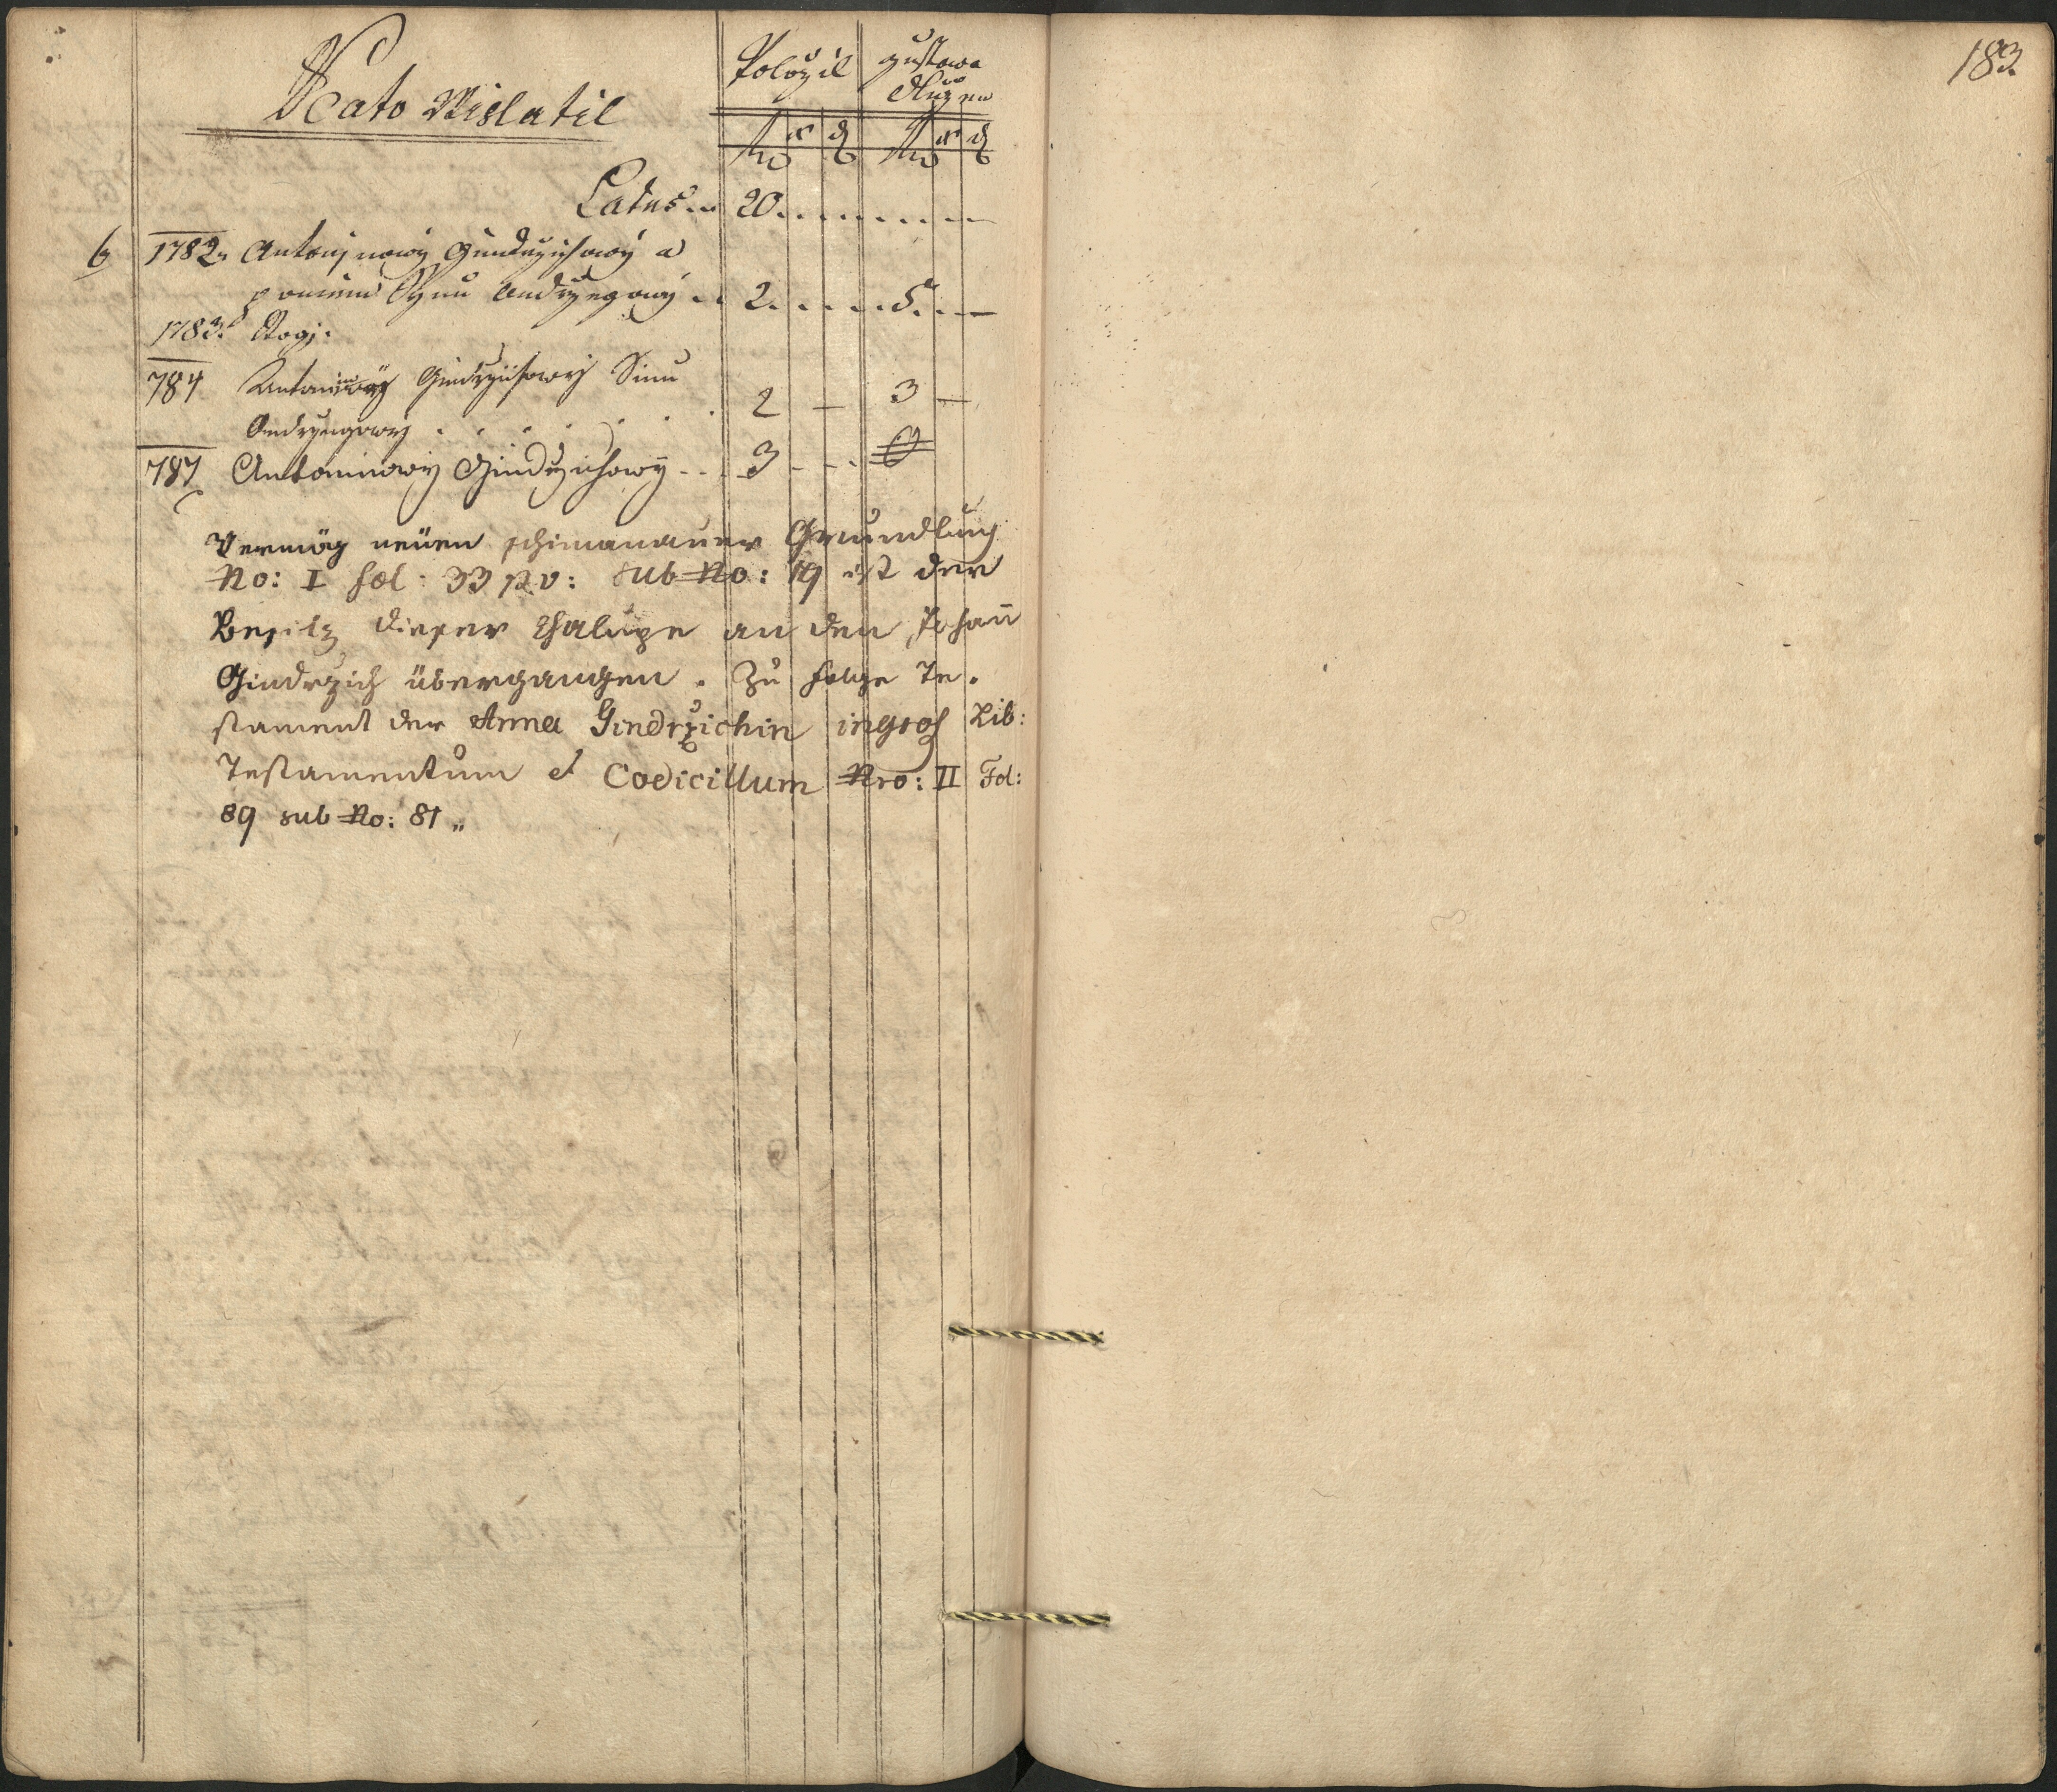 Na to Wislatil
Položil
zustawa
dlužen
Mo x d Mo x d
Latus .. 20
6 1782. Antonjnowý Gindržichowý a
po niem Synu Andržegowý .. 2 5
1783. Rogj:
784 Antoninowý Gindržichowý Sinu
Andržegowý 2 — 3 —
787 Antoninowý Gindržichowý 3 0
Vermög neüen schimanauer Grundbuch
No: I fol: 33 p.v: sub No: 19 ist der
Besitz dieser Chaluppe an den Johan̄
Gindržich übergangen. Zu folge Te-
stament der Anna Gindržichin ingros Lib:
Testamentum et Codicillum Nro: II Fol:
89 sub No: 81 „
183